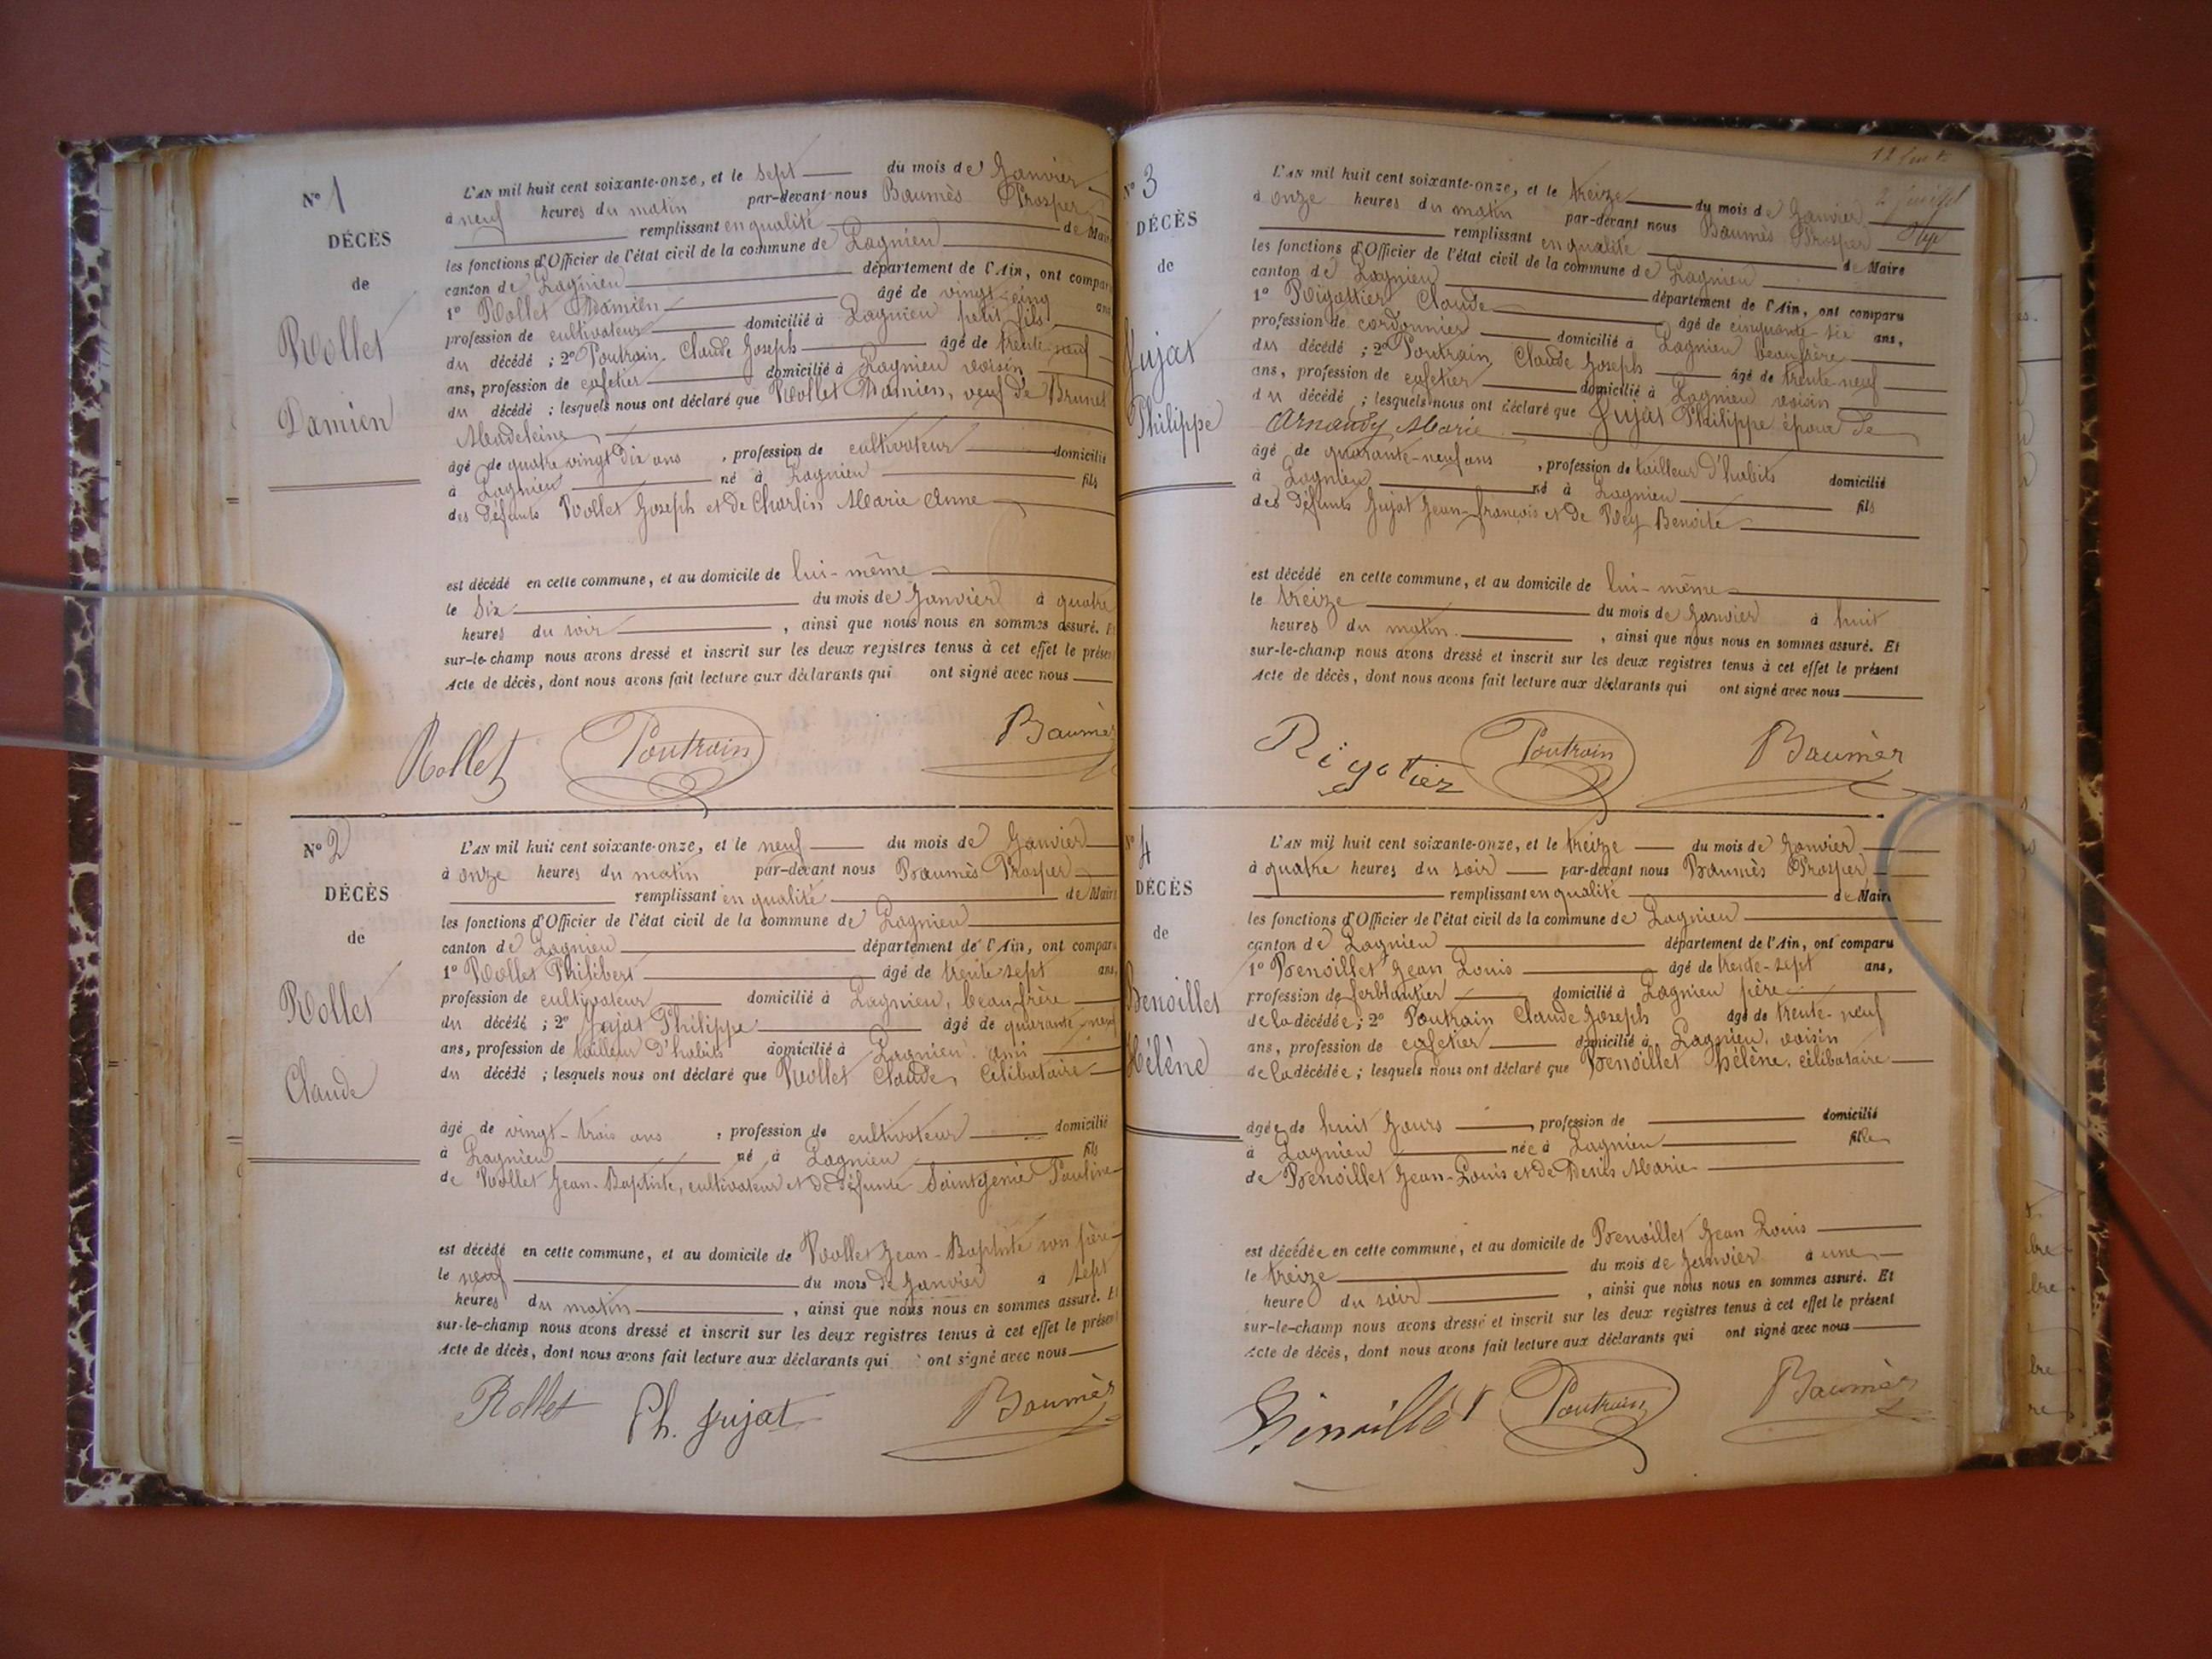 N° 1
DÉCÈS
de
Rollet
Damien
L'AN mil huit cent soixante-onze, et le sept du mois de Janvier
à neuf heures du matin par-devant nous Baumès Prosper
remplissant en qualité de Maire
les fonctions d'Officier de l'état civil de la commune de Lagnieu
canton de Lagnieu département de l'Ain, ont compar
1° Rollet Damien âgé de vingt-cinq ans
profession de cultivateur domicilié à Lagnieu petit fils
du décédé ; 2° Poutrain Claude Joseph âgé de trente-neuf
ans, profession de cafetier domicilié à Lagnieu voisin
du décédé ; lesquels nous ont déclaré que Rollet Damien, veuf de Brunet
Madeleine
âgé de quatre vingt dix ans , profession de cultivateur domicilié
à Lagnieu né à Lagnieu fils
des défunts Rollet Joseph et de Charlin Marie Anne
est décédé en cette commune, et au domicile de lui-même
le six du mois de Janvier à quatre
heures du soir , ainsi que nous nous en sommes assuré. Et
sur-le-champ nous avons dressé et inscrit sur les deux registres tenus à cet effet le présent
Acte de décès, dont nous avons fait lecture aux déclarants qui ont signé avec nous
Rollet Poutrain Baumès
N° 2
DÉCÈS
de
Rollet
Claude
L'AN mil huit cent soixante-onze, et le neuf du mois de Janvier
à onze heures du matin par-devant nous Baumès Prosper
remplissant en qualité de Maire
les fonctions d'Officier de l'état civil de la commune de Lagnieu
canton de Lagnieu département de l'Ain, ont compar
1° Rollet Philibert âgé de trente-sept ans,
profession de cultivateur domicilié à Lagnieu, beau-frère
du décédé ; 2° Jujat Philippe âgé de quarante-neuf
ans, profession de tailleur d'habits domicilié à Lagnieu, ami
du décédé ; lesquels nous ont déclaré que Rollet Claude, célibataire
âgé de vingt-trois ans , profession de cultivateur domicilié
à Lagnieu né à Lagnieu fils
de Rollet Jean-Baptiste, cultivateur et de défunte Saint genie Pauline
est décédé en cette commune, et au domicile de Rollet Jean-Baptiste son père
le neuf du mois de Janvier à sept
heures du matin , ainsi que nous nous en sommes assuré. Et
sur-le-champ nous avons dressé et inscrit sur les deux registres tenus à cet effet le présent
Acte de décès, dont nous avons fait lecture aux déclarants qui ont signé avec nous
Rollet Ph. Jujat Baumès
N° 3
DÉCÈS
de
Jujat
Philippe
L'AN mil huit cent soixante-onze, et le treize du mois de Janvier
à onze heures du matin par-devant nous Baumès Prosper
remplissant en qualité de Maire
les fonctions d'Officier de l'état civil de la commune de Lagnieu
canton de Lagnieu département de l'Ain, ont comparu
1° Rigottier Claude âgé de cinquante-six ans,
profession de cordonnier domicilié à Lagnieu beau frère
du décédé ; 2° Poutrain Claude Joseph âgé de trente-neuf
ans, profession de cafetier domicilié à Lagnieu voisin
du décédé ; lesquels nous ont déclaré que Jujat Philippe époux de
Arnaudy Marie
âgé de quarante-neuf ans , profession de tailleur d'habits domicilié
à Lagnieu né à Lagnieu fils
des défunts Jujat Jean-françois et de Rey Benoite
est décédé en cette commune, et au domicile de lui-même
le treize du mois de Janvier à huit
heures du matin , ainsi que nous nous en sommes assuré. Et
sur-le-champ nous avons dressé et inscrit sur les deux registres tenus à cet effet le présent
Acte de décès, dont nous avons fait lecture aux déclarants qui ont signé avec nous
Rigotier Poutrain Baumès
N° 4
DÉCÈS
de
Benoillet
Hélène
L'AN mil huit cent soixante-onze, et le treize du mois de Janvier
à quatre heures du soir par-devant nous Baumès Prosper
remplissant en qualité de Maire
les fonctions d'Officier de l'état civil de la commune de Lagnieu
canton de Lagnieu département de l'Ain, ont comparu
1° Benoillet Jean Louis âgé de trente-sept ans,
profession de ferblantier domicilié à Lagnieu père
de la décédée ; 2° Poutrain Claude Joseph âgé de trente-neuf
ans, profession de cafetier domicilié à Lagnieu, voisin
de la décédée ; lesquels nous ont déclaré que Benoillet hélène, célibataire
âgée de huit jours , profession de domicilié
à Lagnieu née à Lagnieu fille
de Benoillet Jean-Louis et de Denis Marie
est décédée en cette commune, et au domicile de Benoillet Jean Louis
le treize du mois de Janvier à une
heure du soir , ainsi que nous nous en sommes assuré. Et
sur-le-champ nous avons dressé et inscrit sur les deux registres tenus à cet effet le présent
Acte de décès, dont nous avons fait lecture aux déclarants qui ont signé avec nous
Bénoillet Poutrain Baumès